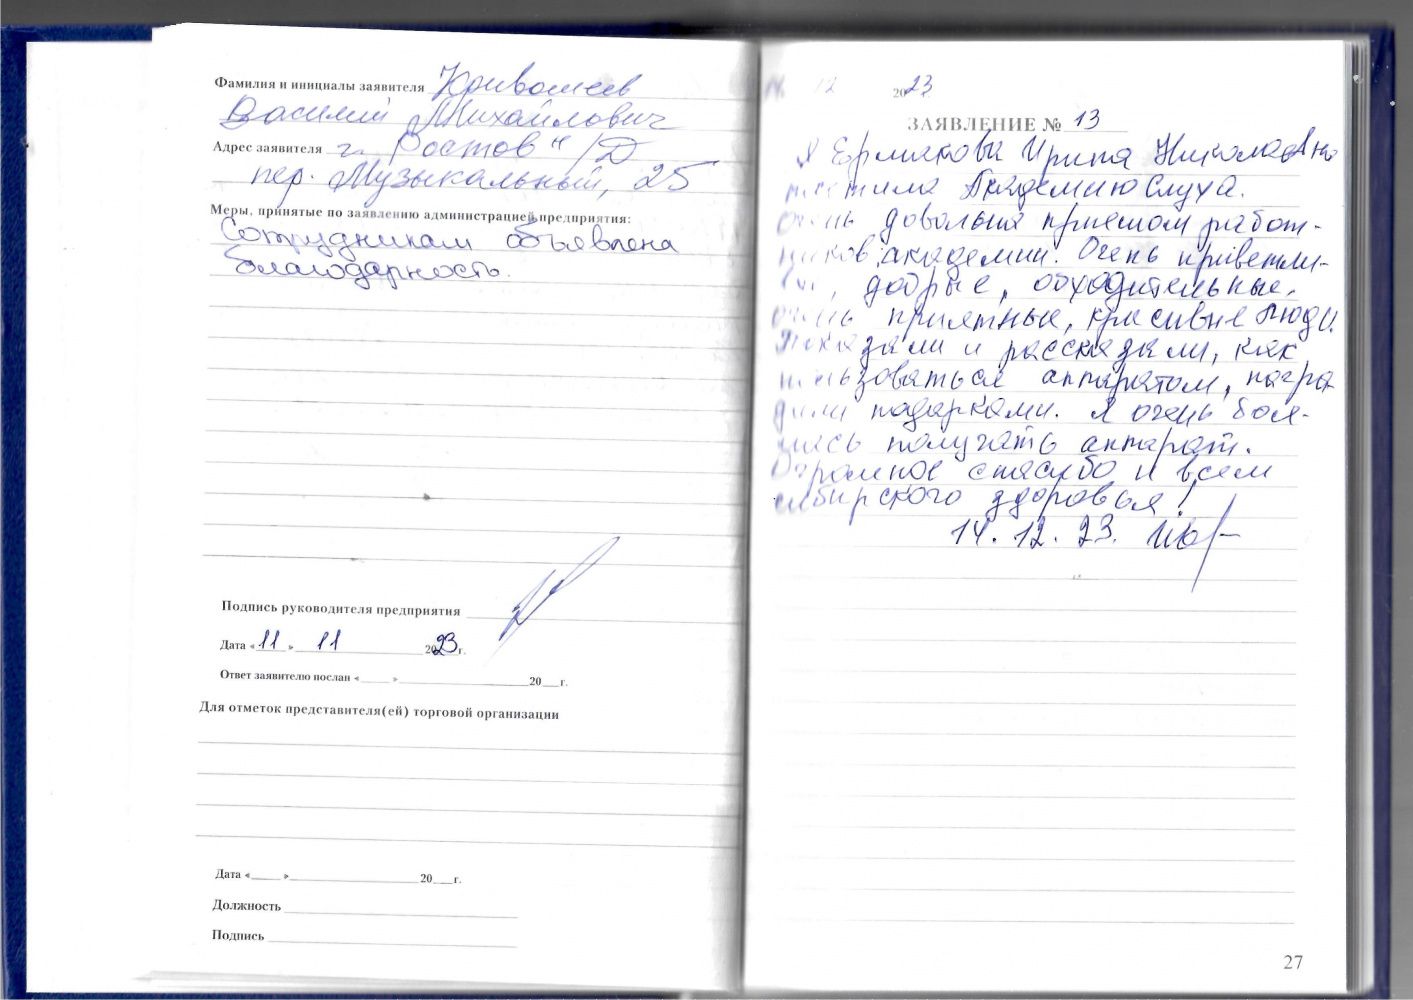 Фамилия и инициалы заявителя Кривошеев
Василий Михайлович
Адрес заявителя г. Ростов н/Д
пер. Музыкальный, 25
Меры, принятые по заявлению администрацией предприятия:
Сотрудникам объявлена
благодарность.
Подпись руководителя предприятия
Дата « 11 » 11 2023 г.
Ответ заявителю послан «___» ___ 20__ г.
Для отметок представителя(ей) торговой организации
Дата «___» ___ 20__ г.
Должность
Подпись
14 12 2023
ЗАЯВЛЕНИЕ № 13
Я Ермакова Ирина Николаевна
посетила Академию Слуха.
Очень довольна приемом работ-
ников академии. Очень приветли-
вые, добрые, обходительные,
очень приятные, красивые люди.
Показали и рассказали, как
пользоваться аппаратом, награ-
дили подарками. Я очень боя-
лась получать аппарат.
Огромное спасибо и всем
сибирского здоровья!
14.12.23.
27